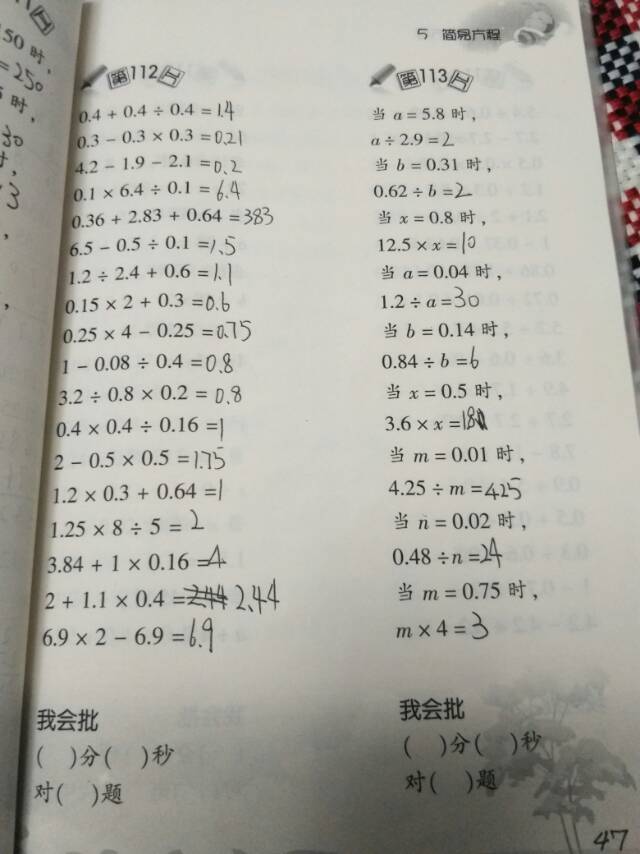 150时，
=250
时，
30
时，
3
，
，
5 简易方程
第112日
0.4+0.4÷0.4=1.4
0.3-0.3×0.3=0.21
4.2-1.9-2.1=0.2
0.1×6.4÷0.1=6.4
0.36+2.83+0.64=383
6.5-0.5÷0.1=1.5
1.2÷2.4+0.6=1.1
0.15×2+0.3=0.6
0.25×4-0.25=0.75
1-0.08÷0.4=0.8
3.2÷0.8×0.2=0.8
0.4×0.4÷0.16=1
2-0.5×0.5=1.75
1.2×0.3+0.64=1
1.25×8÷5=2
3.84+1×0.16=4
2+1.1×0.4=2.44 2.44
6.9×2-6.9=6.9
我会批
(  )分(  )秒
对(  )题
第113日
当a=5.8时，
a÷2.9=2
当b=0.31时，
0.62÷b=2
当x=0.8时，
12.5×x=10
当a=0.04时，
1.2÷a=30
当b=0.14时，
0.84÷b=6
当x=0.5时，
3.6×x=18
当m=0.01时，
4.25÷m=425
当n=0.02时，
0.48÷n=24
当m=0.75时，
m×4=3
我会批
(  )分(  )秒
对(  )题
47